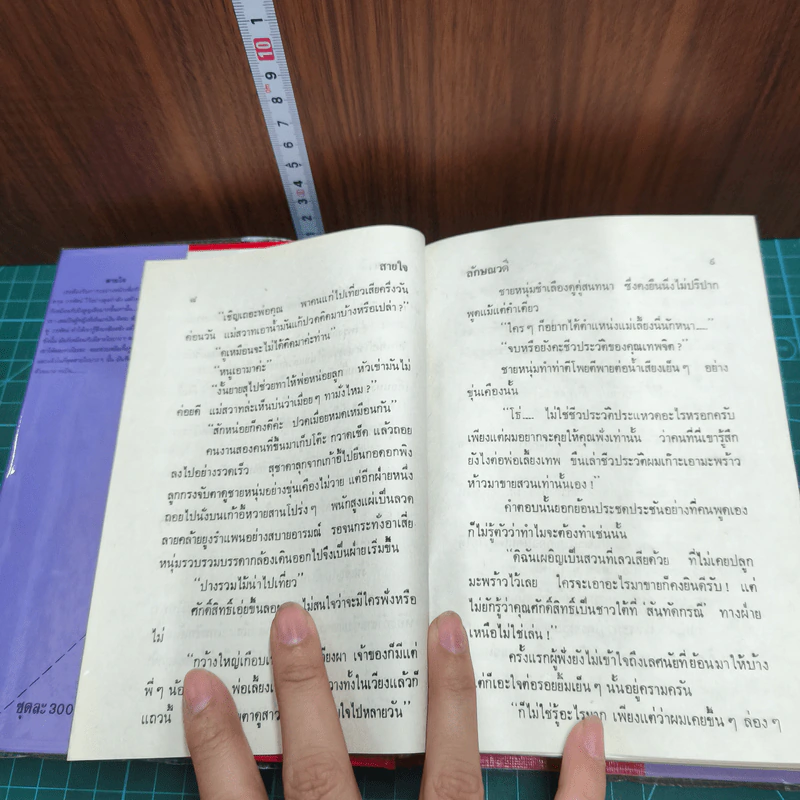 สายใจ
๘
"เชิญเถอะพ่อคุณ พาคนแก่ไปเที่ยวเสียครึ่งวัน
ค่อนวัน แม่สวาทเอาน้ำมันแก้ปวดติดมาบ้างหรือเปล่า ?"
"ดูเหมือนจะไม่ได้ติดมาค่ะท่าน"
"หนูเอามาค่ะ"
"งั้นยายสุไปช่วยทาให้พ่อหน่อยลูก หัวเข่ามันไม่
ค่อยดี แม่สวาทล่ะเห็นบ่นว่าเมื่อย ๆ ทามั่งไหม ?"
"สักหน่อยก็คงดีค่ะ ปวดเมื่อยหมดเหมือนกัน"
คนงานสองคนที่ขึ้นมาเก็บโต๊ะ กวาดเช็ด แล้วถอย
ลงไปอย่างรวดเร็ว สุชาดาลุกจากเก้าอี้ไปยืนกอดอกพิง
ลูกกรงจับตาดูชายหนุ่มอย่างขุ่นเคืองไม่วาย แต่อีกฝ่ายหนึ่ง
ถอยไปนั่งบนเก้าอี้หวายสานโปร่ง ๆ พนักสูงแผ่เป็นลวด
ลายคล้ายยูงรำแพนอย่างสบายอารมณ์ รอจนกระทั่งอาเสี่ย
หนุ่มรวบรวมบรรดากล้องเดินออกไปจึงเป็นฝ่ายเริ่มขึ้น
"ปางรวมไม้น่าไปเที่ยว"
ศักดิ์สิทธิ์เอ่ยขึ้น ไม่สนใจว่าจะมีใครฟังหรือ
ไม่
"กว้างใหญ่เกือบ เจ้าของก็มีแต่
พี่ ๆ พ่อเลี้ยง ทั้งในเวียงแล้วก็
แถวนี้ ไปหลายวัน"
ชุดละ 300
ลักษณวดี
๙
ชายหนุ่มชำเลืองดูคู่สนทนา ซึ่งคงยืนนิ่งไม่ปริปาก
พูดแม้แต่คำเดียว
"ใคร ๆ ก็อยากได้ตำแหน่งแม่เลี้ยงนี่นักหนา....."
"จบหรือยังคะชีวประวัติของคุณเทพจิต ?"
ชายหนุ่มทำท่าดีโพยตีพายต่อน้ำเสียงเย็น ๆ อย่าง
ขุ่นเคืองนั้น
"โธ่..... ไม่ใช่ชีวประวัติประแหวดอะไรหรอกครับ
เพียงแต่ผมอยากจะคุยให้คุณฟังเท่านั้น ว่าคนที่นี่เขารู้สึก
ยังไงต่อพ่อเลี้ยงเทพ ขืนเล่าชีวประวัติผมเก๊าะเอามะพร้าว
ห้าวมาขายสวนเท่านั้นเอง !"
คำตอบนั้นยอกย้อนประชดประชันอย่างที่คนพูดเอง
ก็ไม่รู้ตัวว่าทำไมจะต้องทำเช่นนั้น
"ดิฉันเผอิญเป็นสวนที่เลวเสียด้วย ที่ไม่เคยปลูก
มะพร้าวไว้เลย ใครจะเอาอะไรมาขายก็คงยินดีรับ ! แต่
ไม่ยักรู้ว่าคุณศักดิ์สิทธิ์เป็นชาวใต้ที่ 'สันทัดกรณี' ทางฝ่าย
เหนือไม่ใช่เล่น !"
ครั้งแรกผู้ฟังยังไม่เข้าใจถึงเลศนัยที่ย้อนมาให้บ้าง
แต่ก็เอะใจต่อรอยยิ้มเย็น ๆ นั้นอยู่ครามครัน
"ก็ไม่ใช่รู้อะไรมาก เพียงแต่ว่าผมเคยขึ้น ๆ ล่อง ๆ